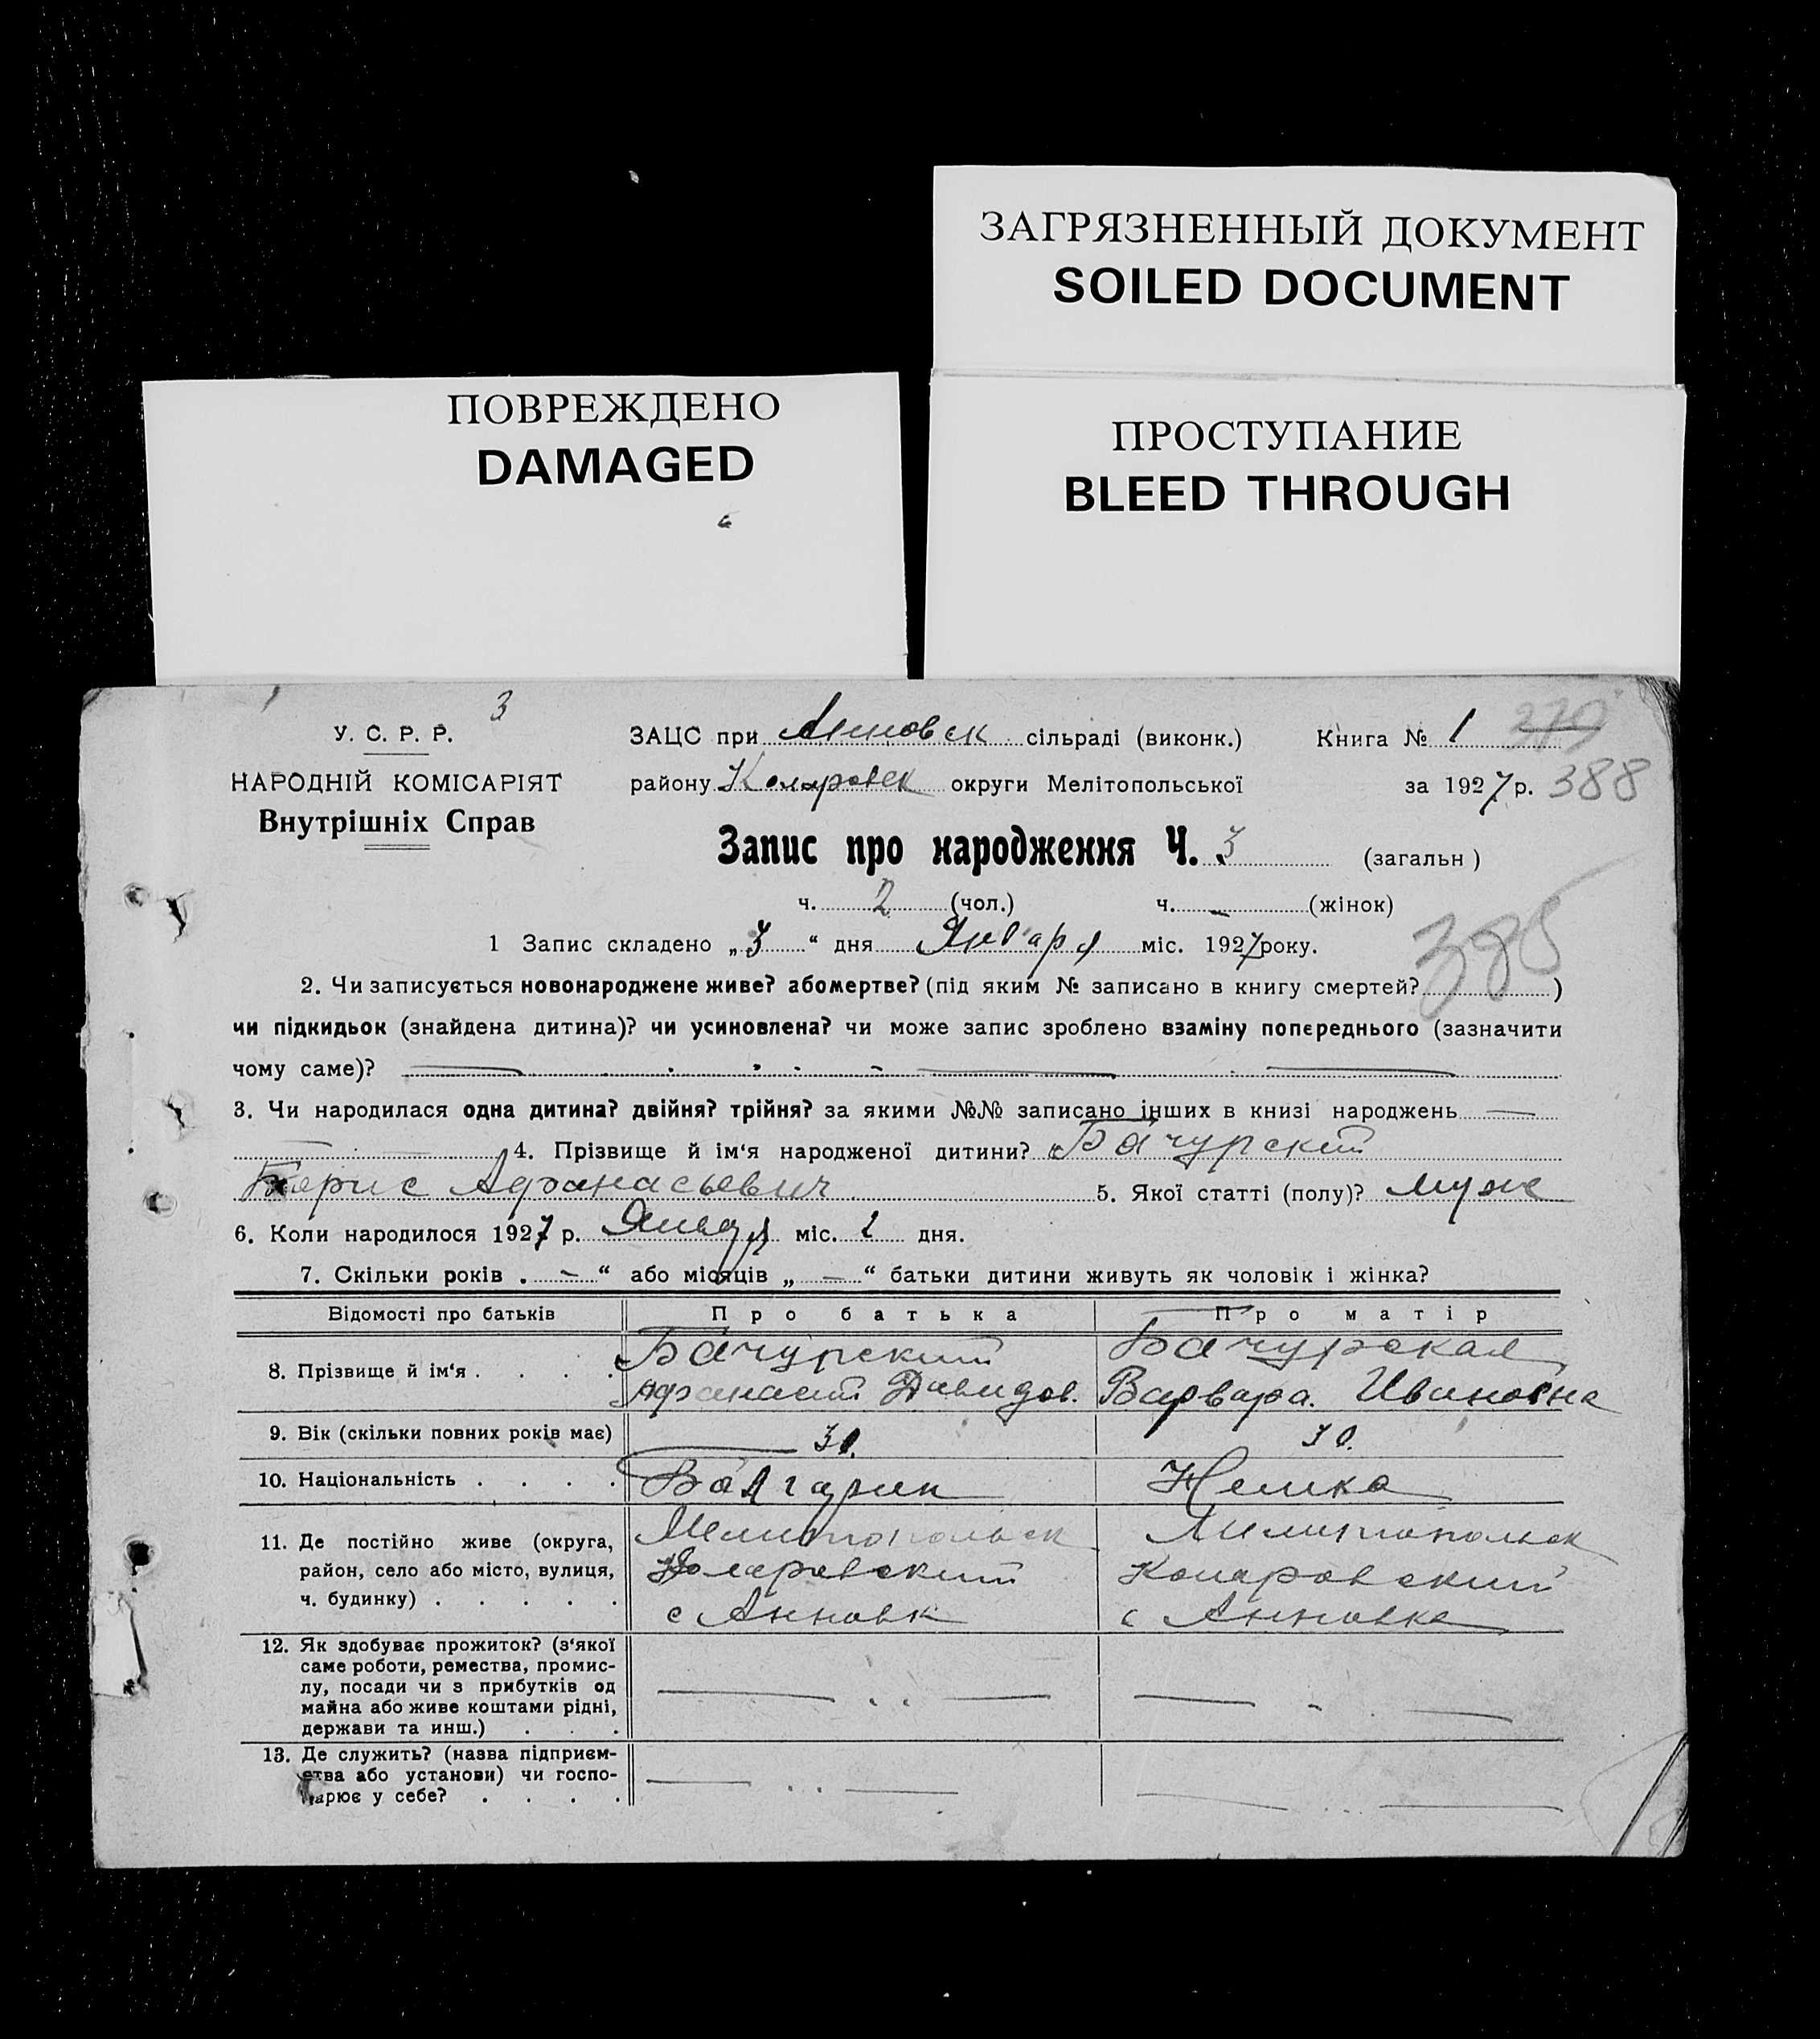 ЗАГРЯЗНЕННЫЙ ДОКУМЕНТ
SOILED DOCUMENT
ПОВРЕЖДЕНО
DAMAGED
ПРОСТУПАНИЕ
BLEED THROUGH
3
У. С. Р. Р.
НАРОДНІЙ КОМІСАРІЯТ
Внутрішніх Справ
ЗАЦС при Анновск сільраді (виконк.) Книга № 1 379
району Коларовск округи Мелітопольської за 1927 р. 388
Запис про народження Ч. 3 (загальн)
ч. 2 (чол.) ч. – (жінок)
385
1 Запис складено „3“ дня Января міс. 1927 року.
2. Чи записується новонароджене живе? або мертве? (під яким № записано в книгу смертей? )
чи підкидьок (знайдена дитина)? чи усиновлена? чи може запис зроблено взаміну попереднього (зазначити
чому саме)?
3. Чи народилася одна дитина? двійня? трійня? за якими №№ записано інших в книзі народжень —
4. Прізвище й ім‘я народженої дитини? Бачурский
Борис Афанасьевич 5. Якої статті (полу)? муж
6. Коли народилося 1927 р. Января міс. 2 дня.
7. Скільки років . –“ або місяців „ –“ батьки дитини живуть як чоловік і жінка?
Відомості про батьків Про батька Про матір
8. Прізвище й ім‘я . . . . Бачурский Бачурская
Афанасий Давидов. Варвара. Ивановна
9. Вік (скільки повних років має) 30. 30.
10. Національність . . . . Болгарин Немка
11. Де постійно живе (округа, Мелитопольск Милитопольск
район, село або місто, вулиця, Коларовский Коларовский
ч. будинку) . . . . . с Анновк с Анновка
12. Як здобуває прожиток? (з‘якої
саме роботи, ремества, промис-
лу, посади чи з прибутків од
майна або живе коштами рідні,
держави та инш.) . . .
13. Де служить? (назва підприєм-
ства або установи) чи госпо-
дарює у себе? . . . .